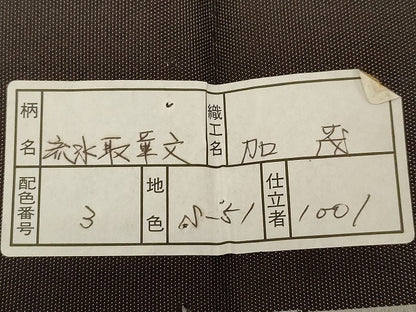 柄名 流水取華文 織工名 加茂
配色番号 3 地色 S-51 仕立者 1001